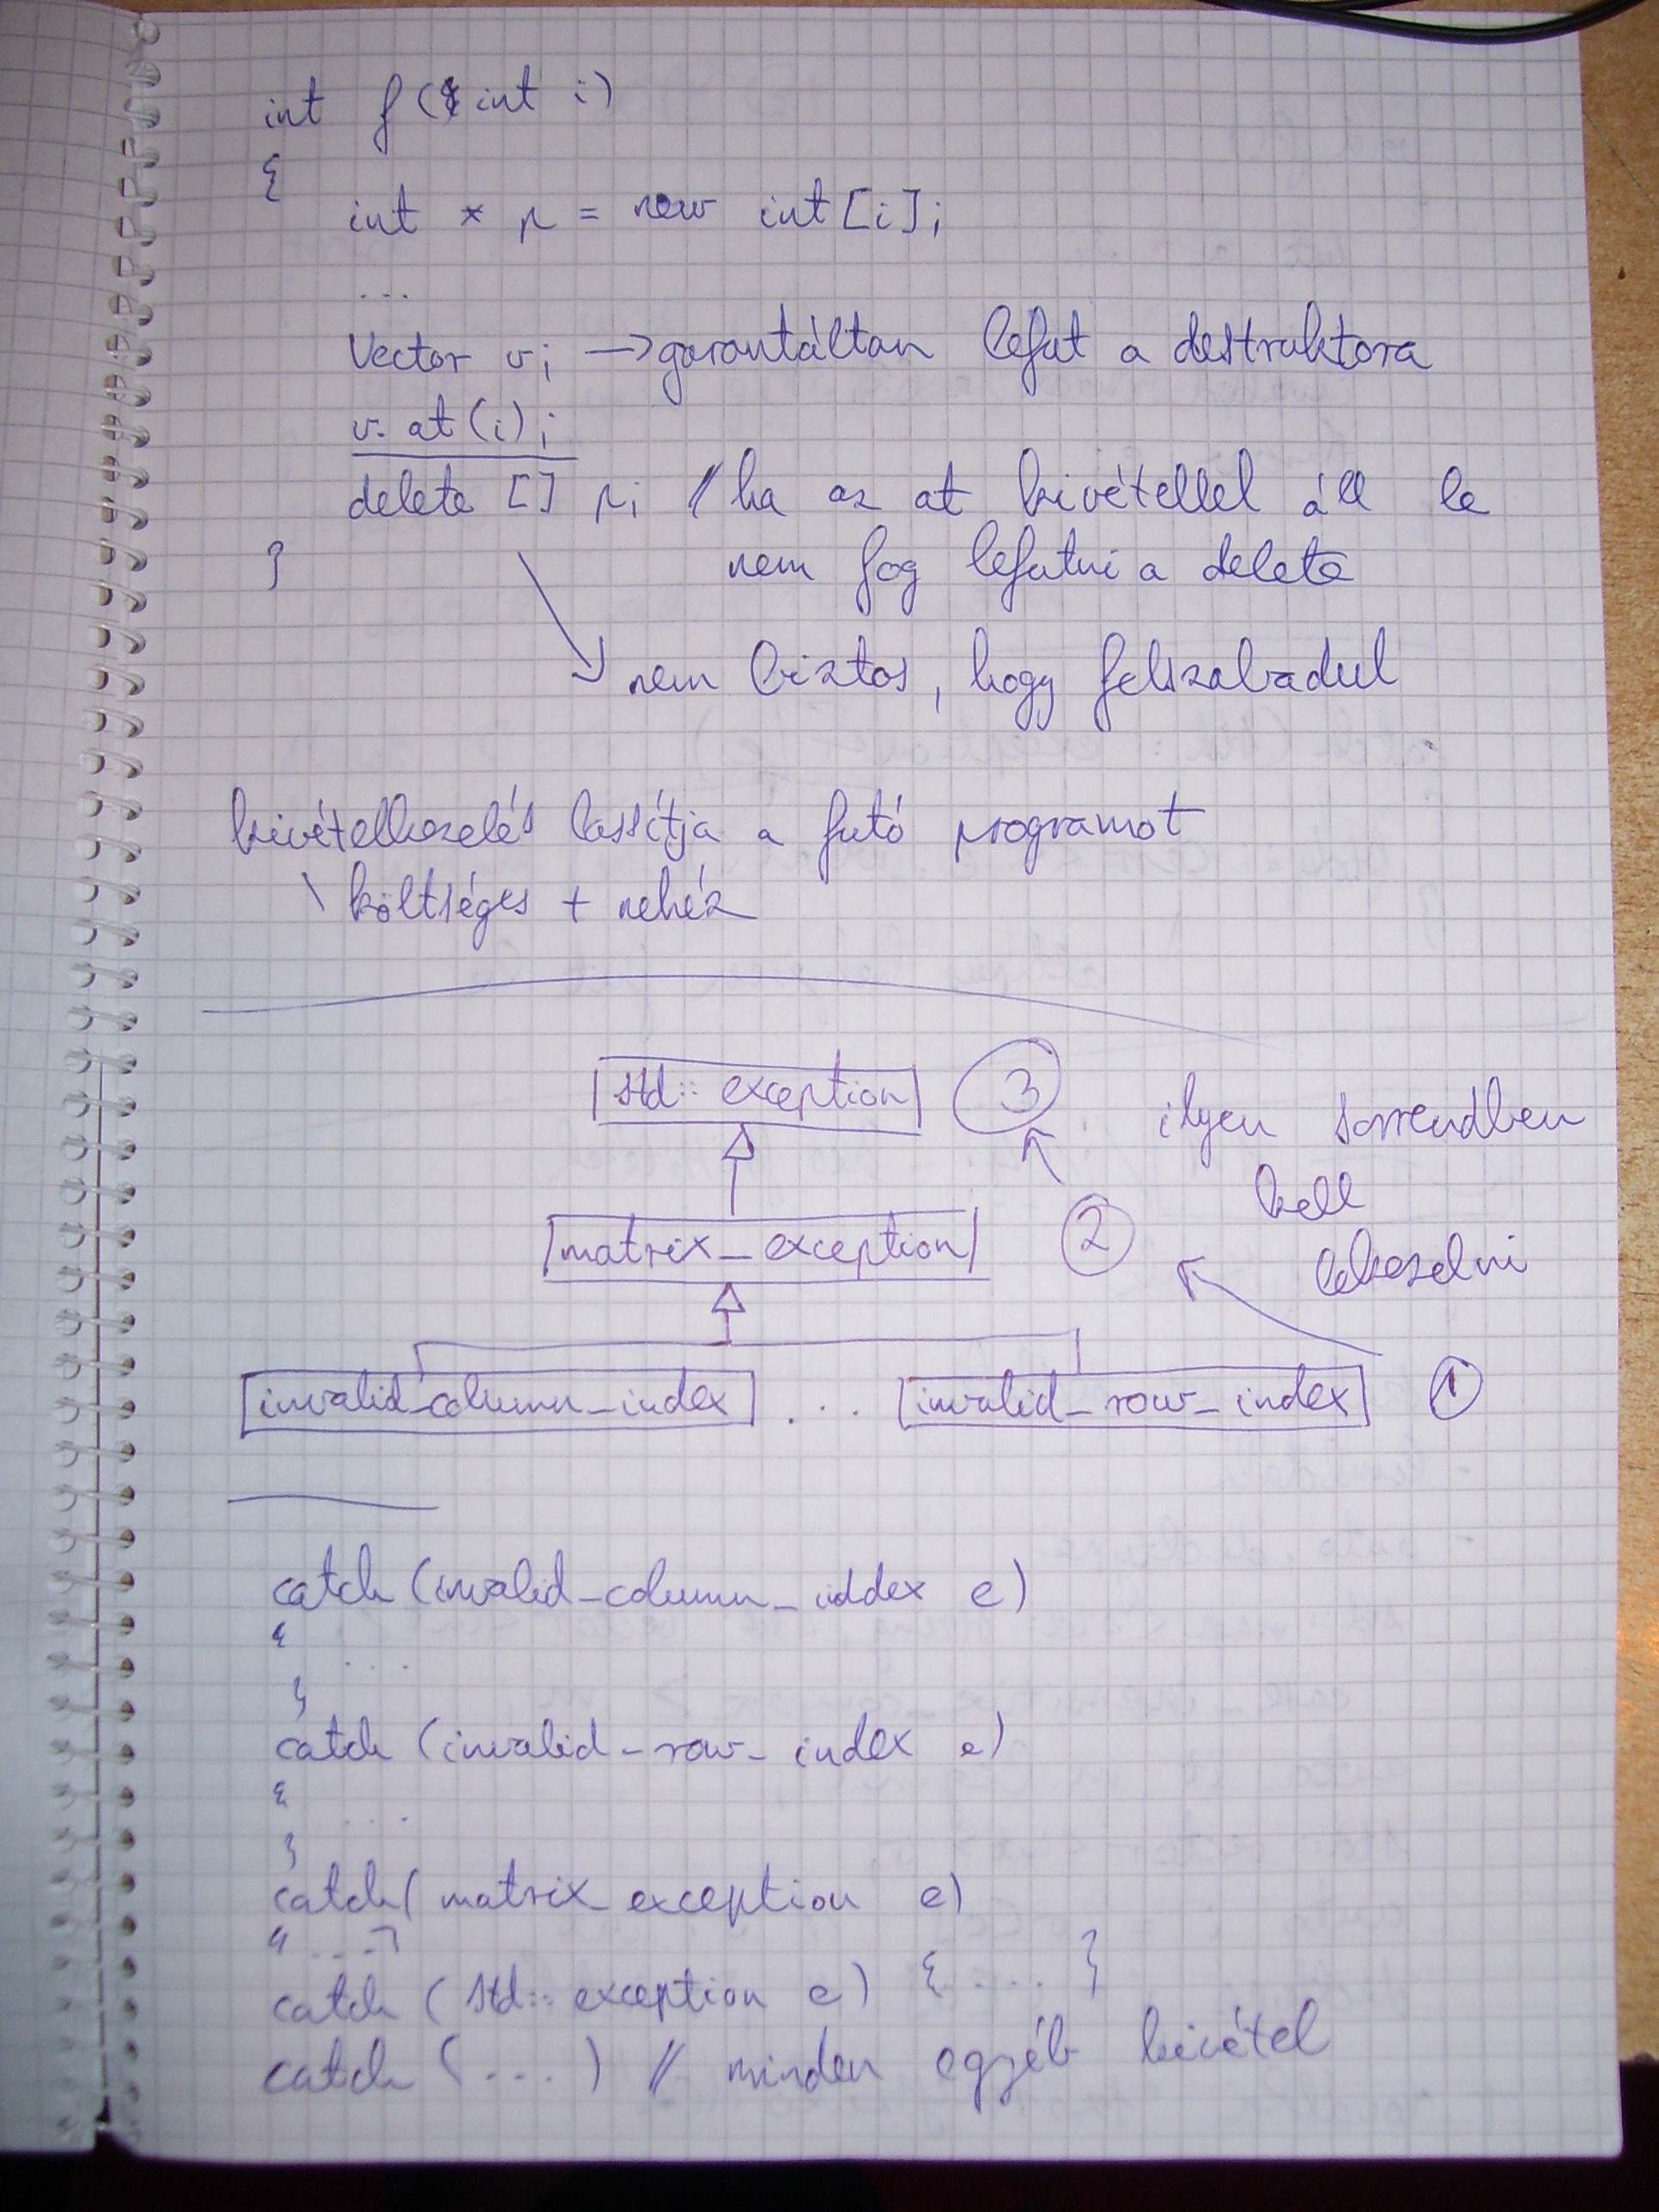 int f(int i)
{
int * p = new int[i];
...
Vector v; → garantáltan lefut a destruktora
v.at(i);
delete [] p; // ha az at kivétellel áll le
nem fog lefutni a delete
}
nem biztos, hogy felszabadul
kivételkezelés lassítja a futó programot
\ költséges + nehéz
std::exception 3
ilyen sorrendben
kell
lekezelni
matrix_exception 2
invalid_column_index ... invalid_row_index 1
catch (invalid_column_iddex e)
{
...
}
catch (invalid_row_index e)
{
...
}
catch( matrix_exception e)
{ ... }
catch ( std::exception e) { .... }
catch (....) // minden egyéb kivétel